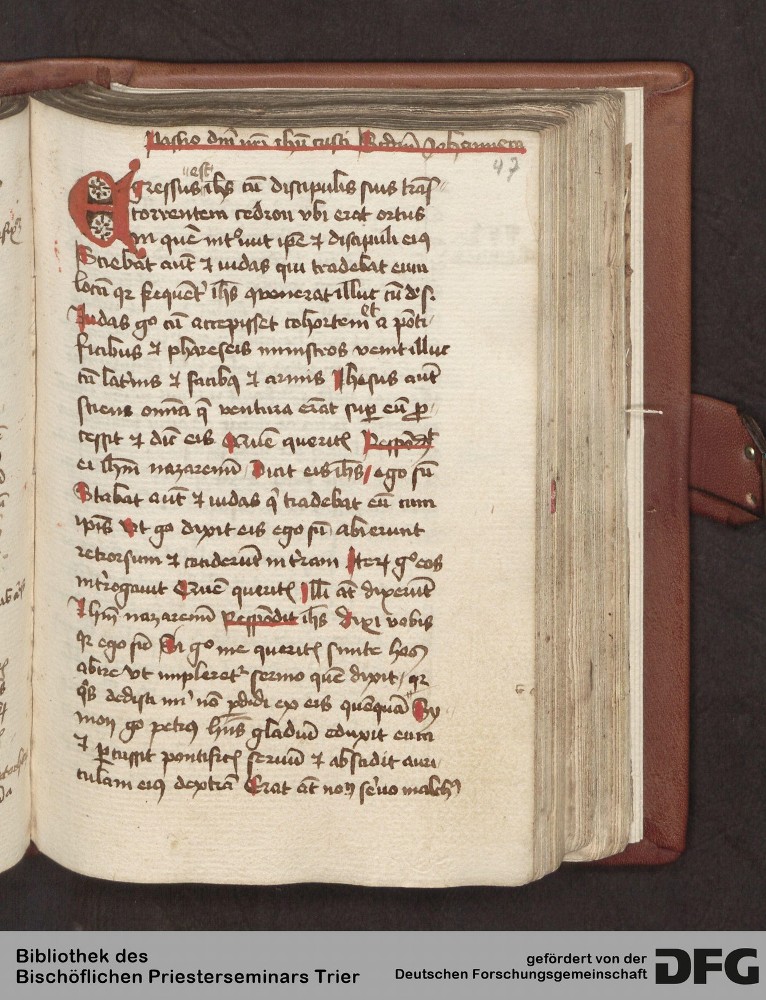 Passio dñi nr̄i ihū cristi Scdm̄ Johannem
47
est
Egressus ihs cū discipulis suis trās
torrentem cedron vbi erat ortus
in quē intͬuit ip̄e ⁊ discipuli eiꝯ
Sciebat aut̄ ⁊ iudas qui tradebat eum
locū qr frequent̾ ihs ꝯuenerat illuc cū d. s.
et
Judas g̊o cū accepisset cohortem a pōti
ficibus ⁊ phareseis ministros venit illuc
cū lat̾nis ⁊ facibꝫ ⁊ armis Jhesus aut̄
sciens omīa q̄ ventura erāt suꝑ eū ꝓ
cessit ⁊ dic̄ eis Quē queritꝭ Respōdꝭ
ei ihm̄ nazarenū Dicit eis ihs / ego sū
Stabat aut̄ ⁊ iudas q̇ tradebat eū cum
ip̄is Vt g̊o dixit eis ego sū abierunt
retrorsum ⁊ ceciderūt in t̾ram Iterꝝ g̊ eos
int̾rogauit Quē queritꝭ Illi at̄ dixerūt
Jhm̄ nazarenū Respōdit ihs dixi vobis
qr ego sū Si g̊o me queritꝭ sinite hos
abire vt impleret̾ sermo quē dixit / qr
q̊s dedisti mͥ nō ꝑdidi ex eis quēquā Sy
mon g̊o petrꝯ hn̄s gladiū eduxit eum
⁊ ꝑcussit pontificꝭ seruū ⁊ abscidit auri
culam eiꝯ dextrā Erat at̄ nom̄ s̾uo malchꝯ
Bibliothek des
Bischöflichen Priesterseminars Trier
gefördert von der
Deutschen Forschungsgemeinschaft
DFG